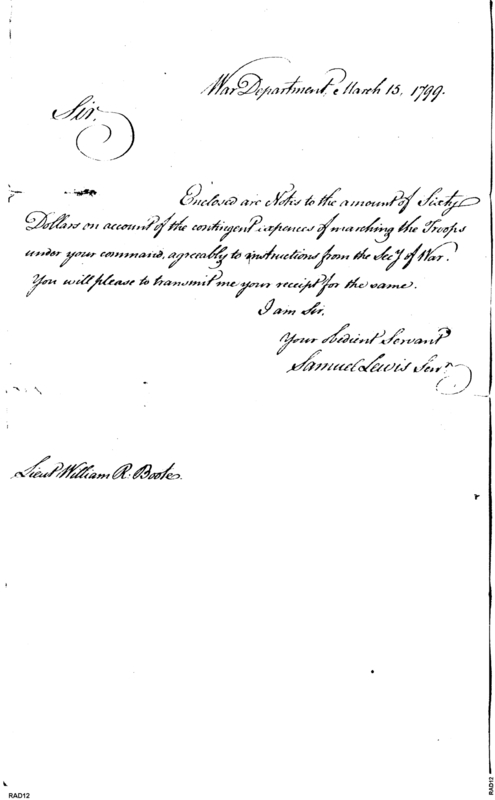 War Department, March 15, 1799.
Sir,
Enclosed are Notes to the amount of Sixty
Dollars on account of the contingent expences of marching the Troops
under your command, agreeably to instructions from the Secy of War.
You will please to transmit me your receipt for the same.
I am Sir,
Your obedient Servant
Samuel Lewis Senr
Lieut William R. Boote.
RAD12
RAD12